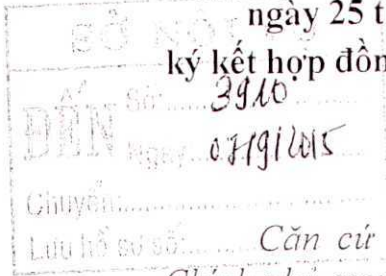 ngày 25 t
SỞ NỘI
ký kết hợp đồn
ĐẾN Số: 3910
Ngày 07/9/2015
Chuyển:
Lưu hồ sơ số:
Căn cứ